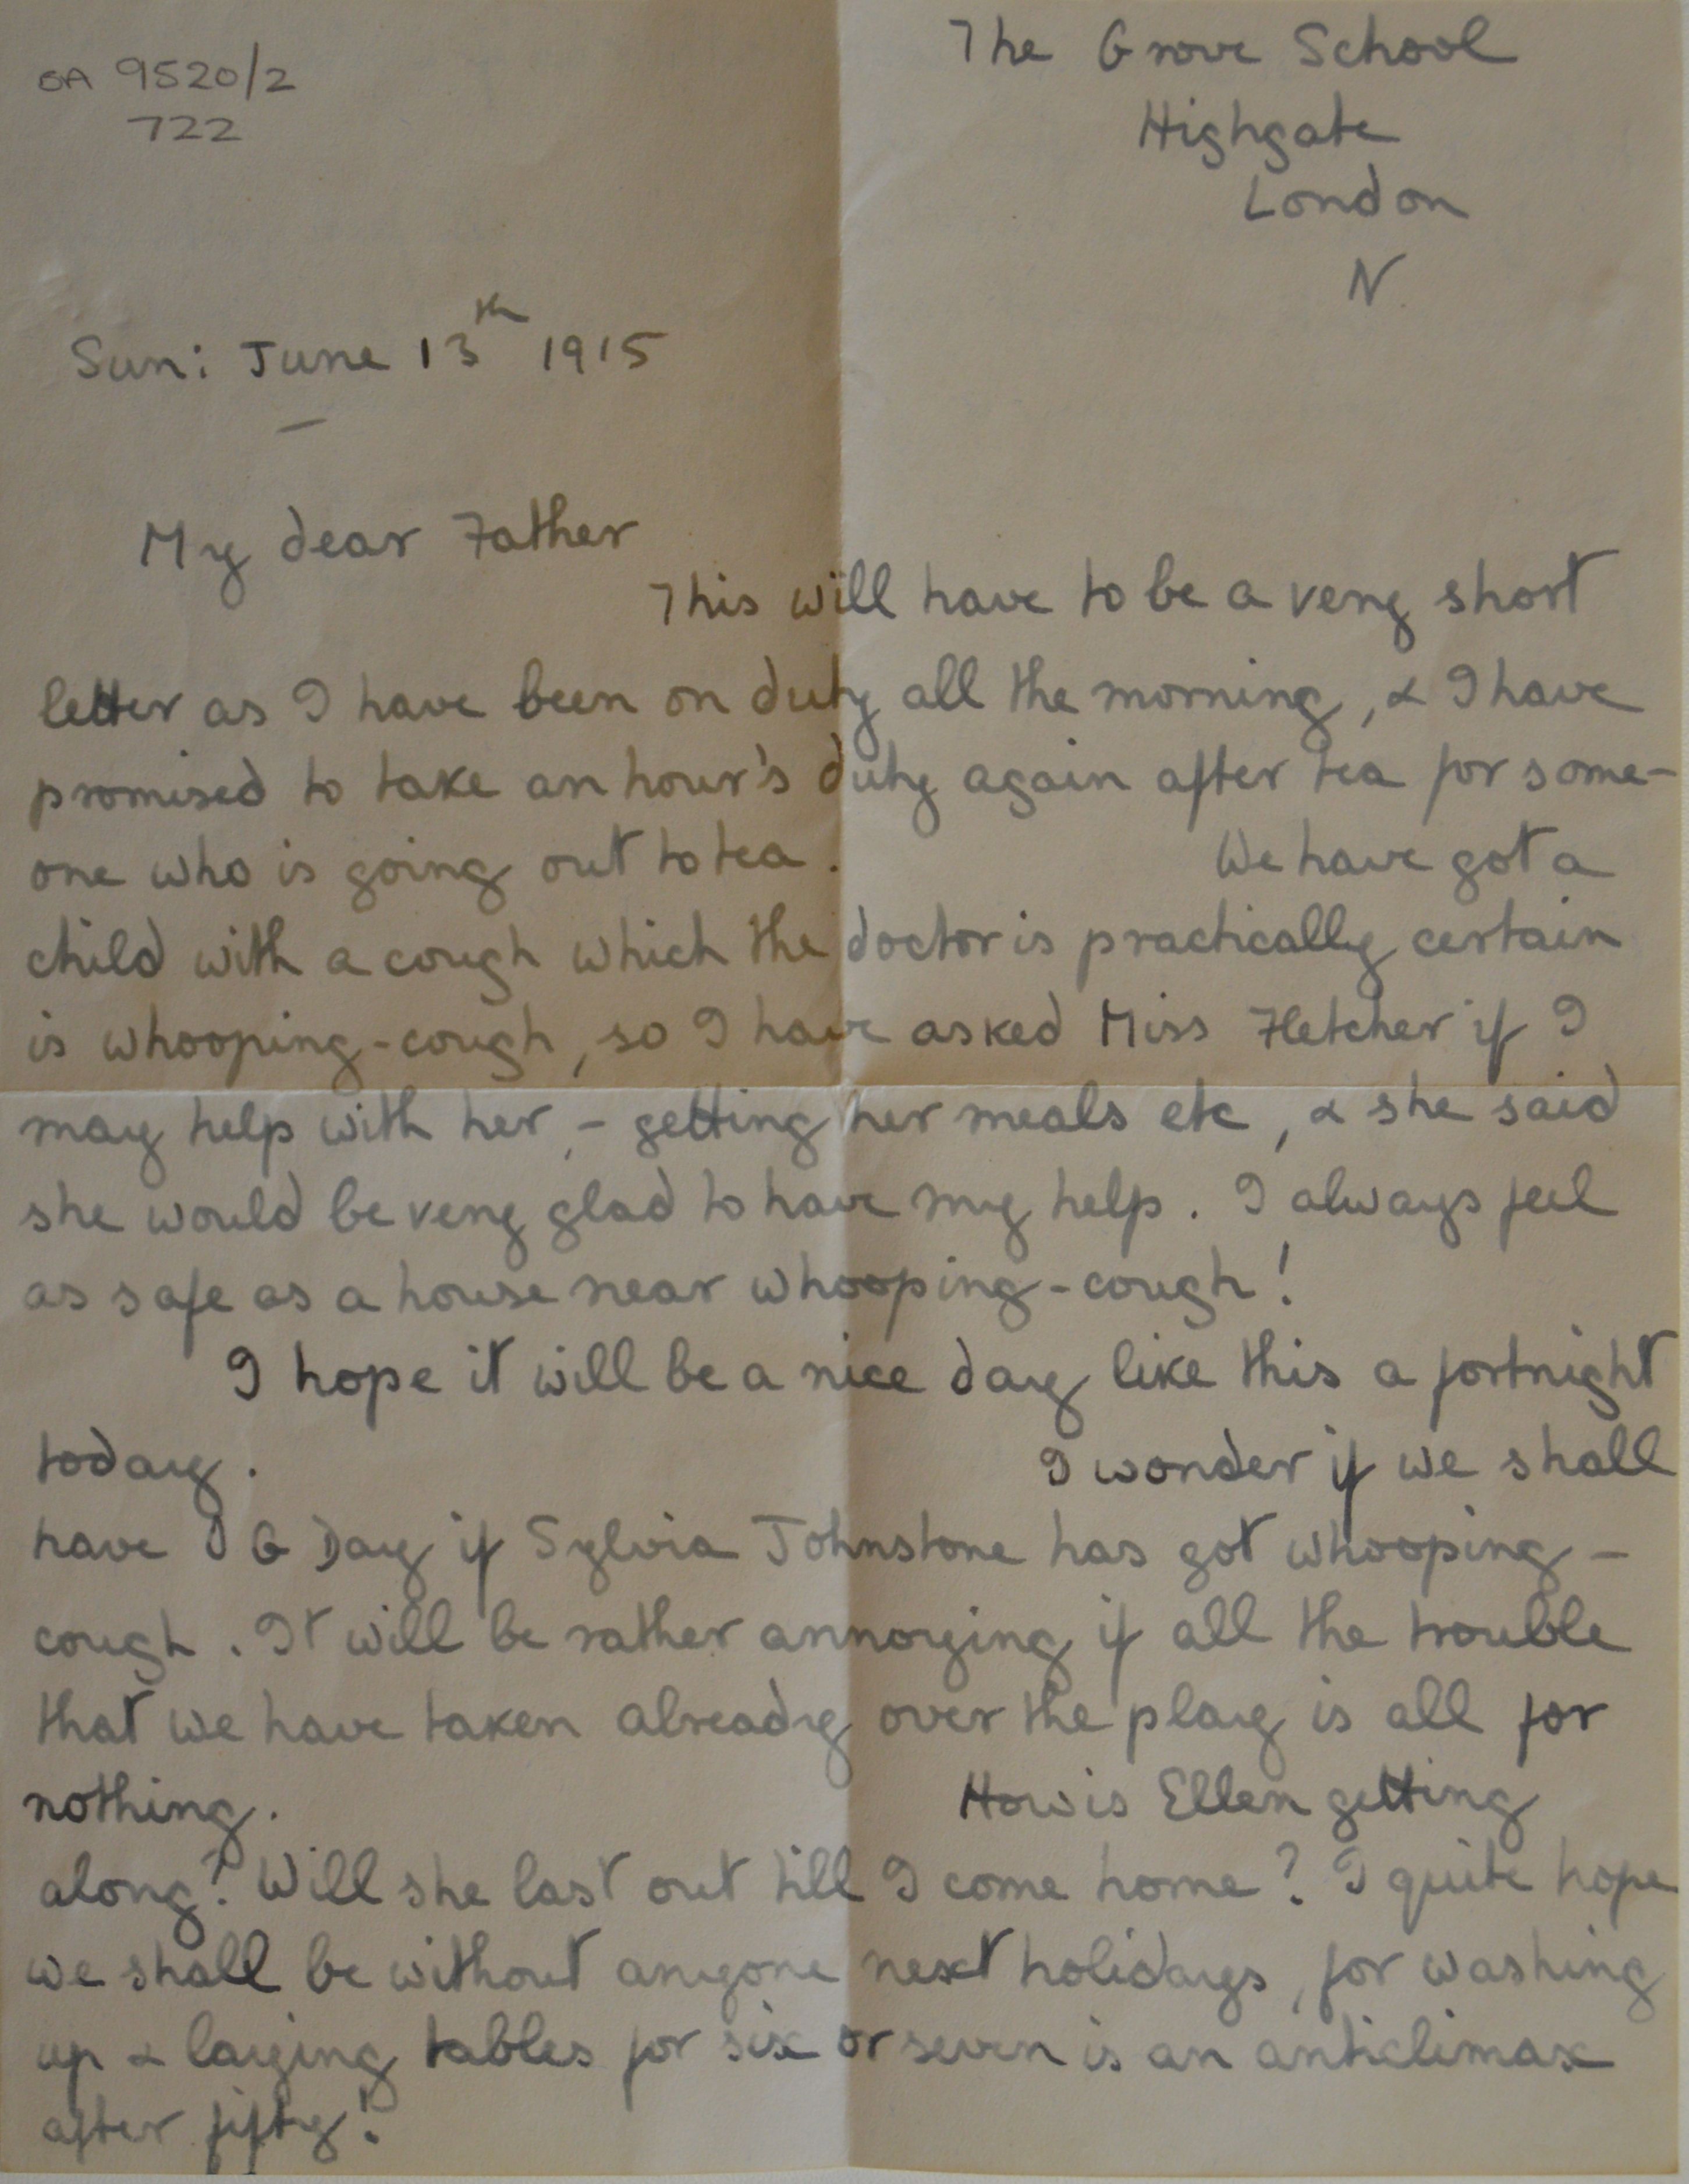 The Grove School
OA 9520/2
722
Highgate
London
N.
Sun: June 13th 1915
My dear Father
This will have to be a very short
letter as I have been on duty all the morning, & I have
promised to take an hour's duty again after tea for some-
one who is going out to tea. We have got a
child with a cough which the doctor is practically certain
is whooping-cough, so I have asked Miss Fletcher if I
may help with her, - getting her meals etc, & she said
she would be very glad to have my help. I always feel
as safe as a house near whooping-cough!
I hope it will be a nice day like this a fortnight
today. I wonder if we shall
have O G Day if Sylvia Johnstone has got whooping-
cough. It will be rather annoying if all the trouble
that we have taken already over the play is all for
nothing. How is Ellen getting
along? Will she last out till I come home? I quite hope
we shall be without anyone next holidays, for washing
up & laying tables for six or seven is an anticlimax
after fifty!